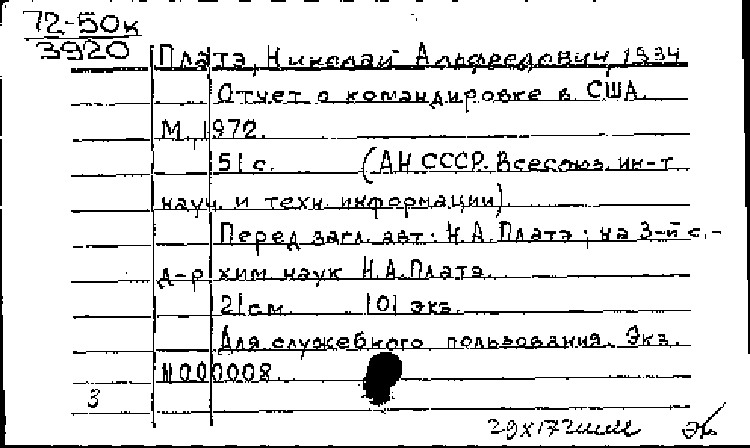 72-50к
3920
Платэ, Николай Альфредович, 1934
Отчет о командировке в США.
М., 1972.
51 с. (АН СССР. Всесоюз. ин-т
науч. и техн. информации).
Перед загл. авт.: Н.А. Платэ; на 3-й с.-
д-р хим. наук Н.А. Платэ.
21 см. 101 экз.
Для служебного пользования. Экз.
N000008.
3